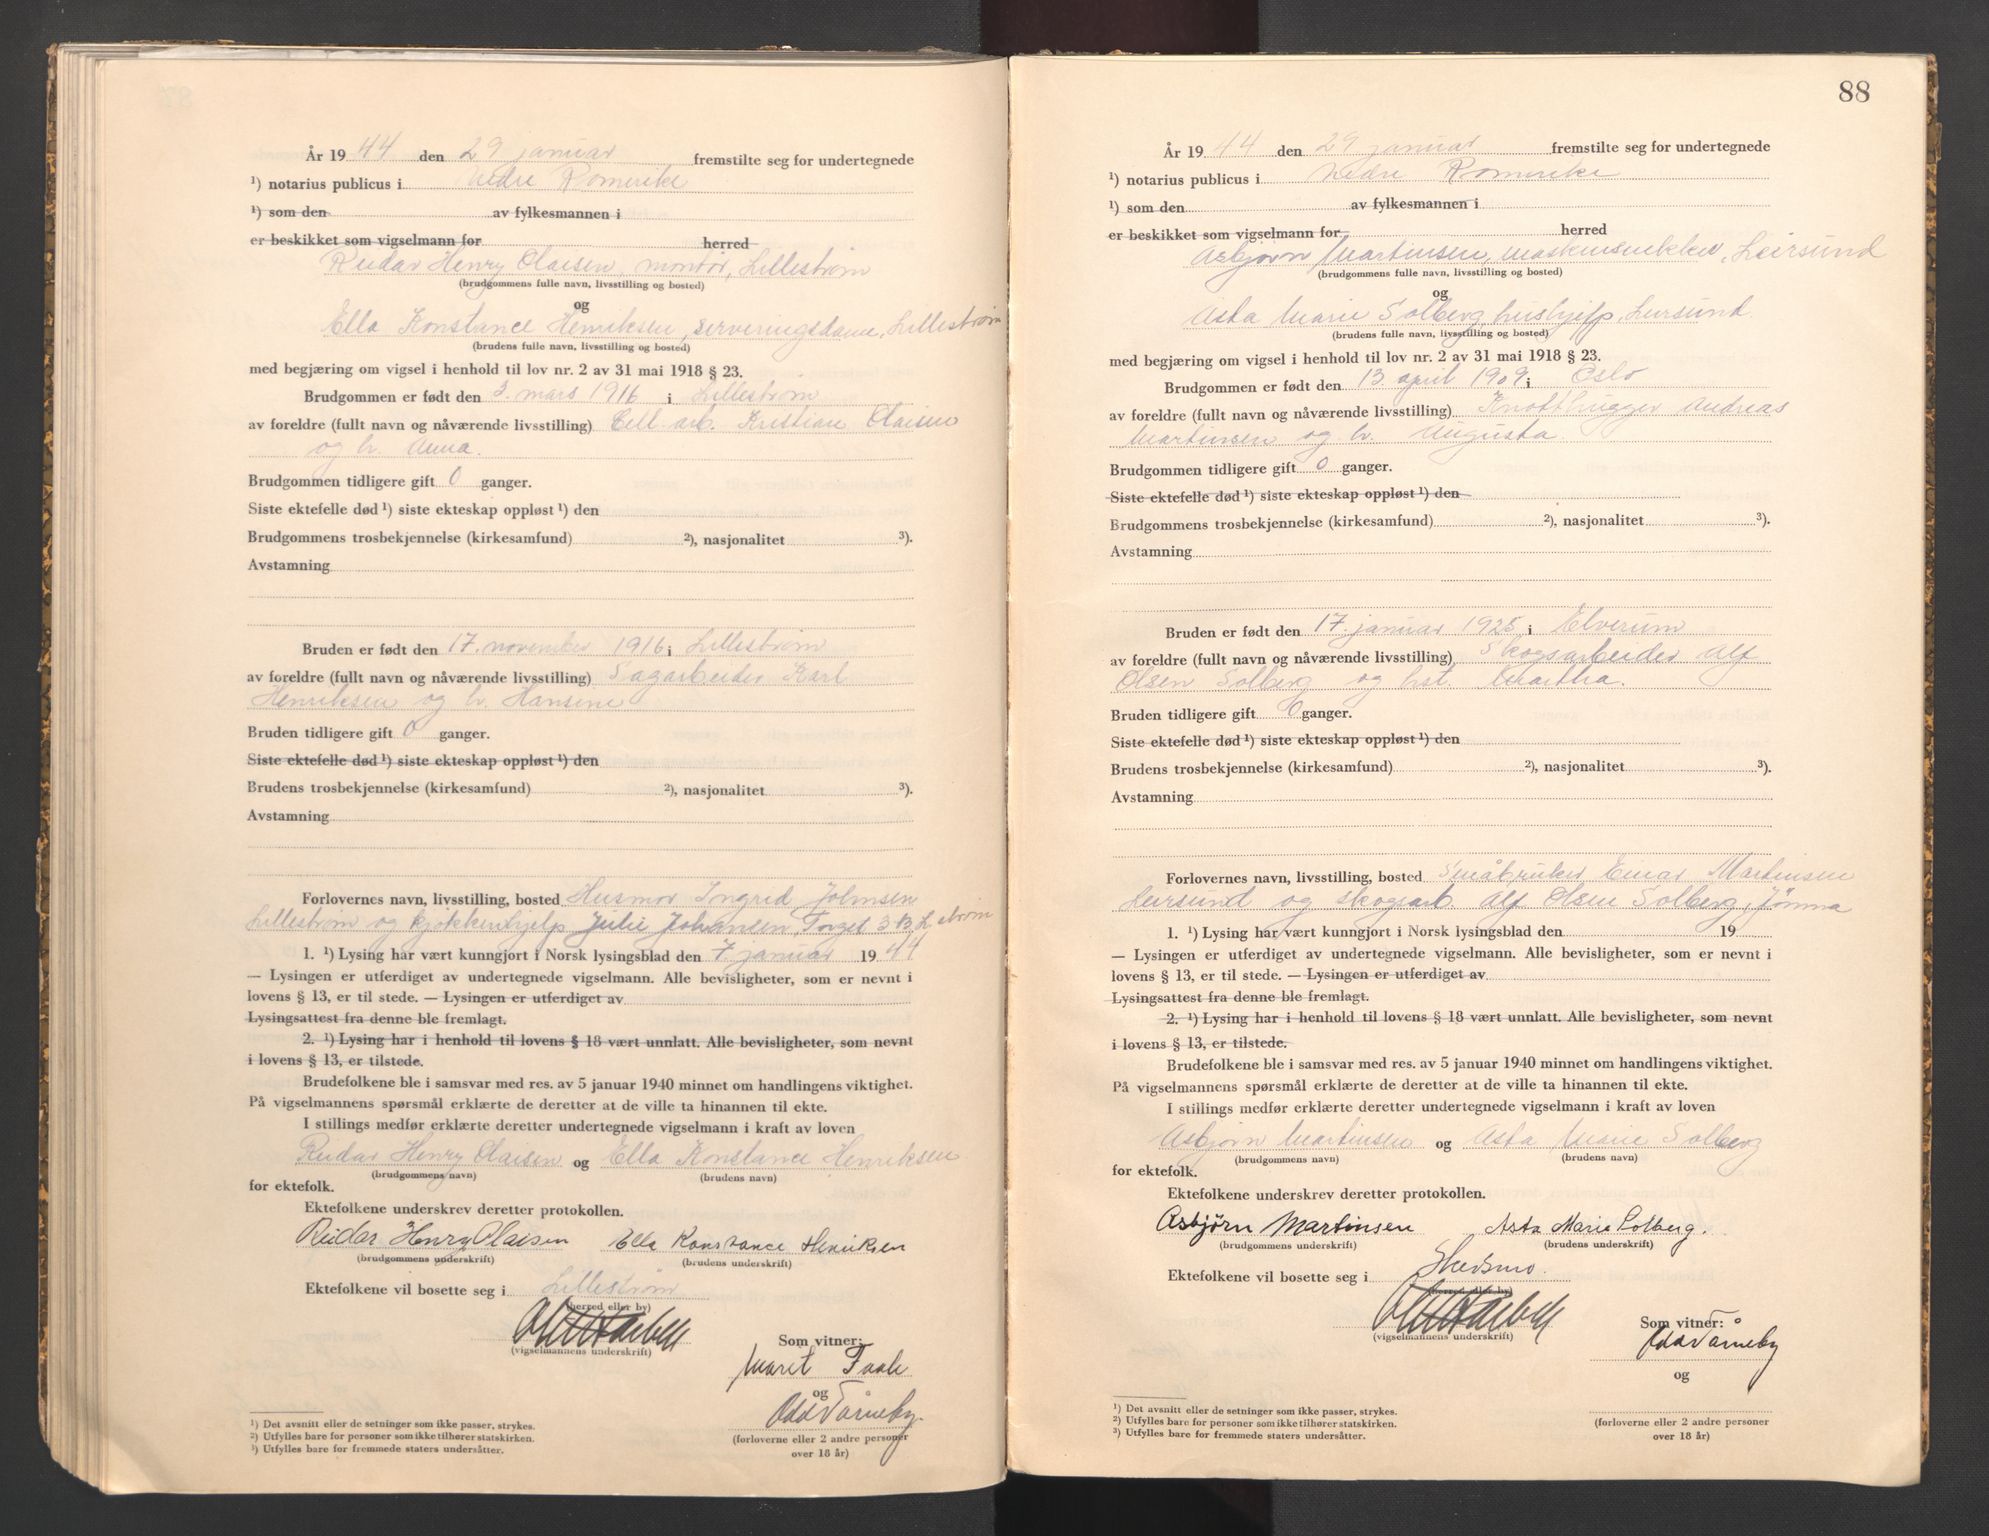 År 19 44 den 29 januar fremstilte seg for undertegnede
¹) notarius publicus i Nedre Romerike
¹) som den av fylkesmannen i
er beskikket som vigselmann for herred
Reidar Henry Olaisen, montør, Lillestrøm
(brudgommens fulle navn, livsstilling og bosted)
og
Ella Konstance Henriksen, serveringsdame, Lillestrøm
(brudens fulle navn, livsstilling og bosted)
med begjæring om vigsel i henhold til lov nr. 2 av 31 mai 1918 § 23.
Brudgommen er født den 3. mars 1916 i Lillestrøm
av foreldre (fullt navn og nåværende livsstilling) Cell. arb. Kristian Olaisen
og h. Anna.
Brudgommen tidligere gift 0 ganger.
Siste ektefelle død ¹) siste ekteskap oppløst ¹) den
Brudgommens trosbekjennelse (kirkesamfund) ²), nasjonalitet ³).
Avstamning
Bruden er født den 17. november 1916 i Lillestrøm
av foreldre (fullt navn og nåværende livsstilling) Sagarbeider Karl
Henriksen og h. Hansine
Bruden tidligere gift 0 ganger.
Siste ektefelle død ¹) siste ekteskap oppløst ¹) den
Brudens trosbekjennelse (kirkesamfund) ²), nasjonalitet ³).
Avstamning
Forlovernes navn, livsstilling, bosted Husmor Ingrid Johnsen
Lillestrøm og kjøkkenhjelp Julie Johansen, Torget 3 B, L.strøm
1. ¹) Lysing har vært kunngjort i Norsk lysingsblad den 7. januar 19 44
— Lysingen er utferdiget av undertegnede vigselmann. Alle bevisligheter, som er nevnt i
lovens § 13, er til stede. — Lysingen er utferdiget av
Lysingsattest fra denne ble fremlagt.
2. ¹) Lysing har i henhold til lovens § 18 vært unnlatt. Alle bevisligheter, som nevnt
i lovens § 13, er tilstede.
Brudefolkene ble i samsvar med res. av 5 januar 1940 minnet om handlingens viktighet.
På vigselmannens spørsmål erklærte de deretter at de ville ta hinannen til ekte.
I stillings medfør erklærte deretter undertegnede vigselmann i kraft av loven
Reidar Henry Olaisen og Ella Konstance Henriksen
(brudgommens navn) (brudens navn)
for ektefolk.
Ektefolkene underskrev deretter protokollen.
Reidar Henry Olaisen Ella Konstance Henriksen
(brudgommens underskrift) (brudens underskrift)
Ektefolkene vil bosette seg i Lillestrøm
(herred eller by)
(vigselmannens underskrift)
Som vitner:
Maret Faale
og
Odd Tårneby.
(forloverne eller 2 andre personer
over 18 år)
¹) Det avsnitt eller de setninger som ikke passer, strykes.
²) Utfylles bare for personer som ikke tilhører statskirken.
³) Utfylles bare for fremmede staters undersåtter.
88
År 19 44 den 29 januar fremstilte seg for undertegnede
¹) notarius publicus i Nedre Romerike
¹) som den av fylkesmannen i
er beskikket som vigselmann for herred
Asbjørn Martinsen, maskinsnekker, Leirsund
(brudgommens fulle navn, livsstilling og bosted)
og
Asta Marie Solberg hushjelp, Leirsund
(brudens fulle navn, livsstilling og bosted)
med begjæring om vigsel i henhold til lov nr. 2 av 31 mai 1918 § 23.
Brudgommen er født den 13. april 1909 i Oslo
av foreldre (fullt navn og nåværende livsstilling) Knotthugger Andreas
Martinsen og h. Augusta.
Brudgommen tidligere gift 0 ganger.
Siste ektefelle død ¹) siste ekteskap oppløst ¹) den
Brudgommens trosbekjennelse (kirkesamfund) ²), nasjonalitet ³).
Avstamning
Bruden er født den 17. januar 1925 i Elverum
av foreldre (fullt navn og nåværende livsstilling) Skogsarbeider Alf
Olsen Solberg og hst. Martha.
Bruden tidligere gift 0 ganger.
Siste ektefelle død ¹) siste ekteskap oppløst ¹) den
Brudens trosbekjennelse (kirkesamfund) ²), nasjonalitet ³).
Avstamning
Forlovernes navn, livsstilling, bosted Småbruker Einar Martinsen
Leirsund og skogsarb. Alf Olsen Solberg, Jømna
1. ¹) Lysing har vært kunngjort i Norsk lysingsblad den 19
— Lysingen er utferdiget av undertegnede vigselmann. Alle bevisligheter, som er nevnt i
lovens § 13, er til stede. — Lysingen er utferdiget av
Lysingsattest fra denne ble fremlagt.
2. ¹) Lysing har i henhold til lovens § 18 vært unnlatt. Alle bevisligheter, som nevnt
i lovens § 13, er tilstede.
Brudefolkene ble i samsvar med res. av 5 januar 1940 minnet om handlingens viktighet.
På vigselmannens spørsmål erklærte de deretter at de ville ta hinannen til ekte.
I stillings medfør erklærte deretter undertegnede vigselmann i kraft av loven
Asbjørn Martinsen og Asta Marie Solberg
(brudgommens navn) (brudens navn)
for ektefolk.
Ektefolkene underskrev deretter protokollen.
Asbjörn Martinsen Asta Marie Solberg.
(brudgommens underskrift) (brudens underskrift)
Ektefolkene vil bosette seg i Skedsmo.
(herred eller by)
(vigselmannens underskrift)
Som vitner:
Odd Tårneby
og
(forloverne eller 2 andre personer
over 18 år)
¹) Det avsnitt eller de setninger som ikke passer, strykes.
²) Utfylles bare for personer som ikke tilhører statskirken.
³) Utfylles bare for fremmede staters undersåtter.